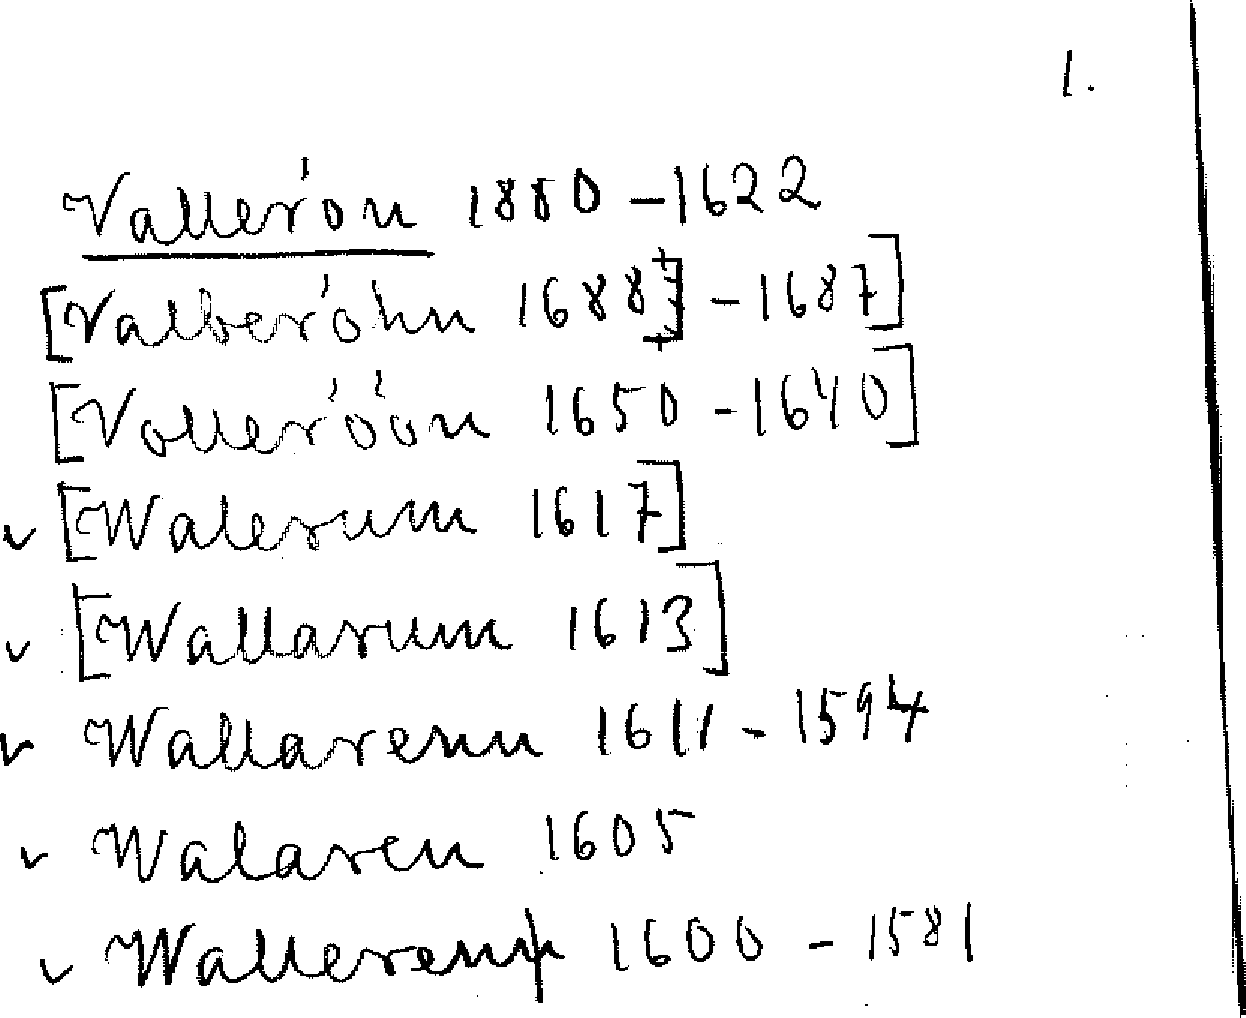 1.
Vallerón 1880 - 1622
[Valberóhn 1688] - 1687]
[Volleróón 1650 - 1640]
v [Walerum 1617]
v [Wallarum 1613]
v Wallarenn 1611 - 1594
v Walaren 1605
v Wallerenn 1600 - 1581